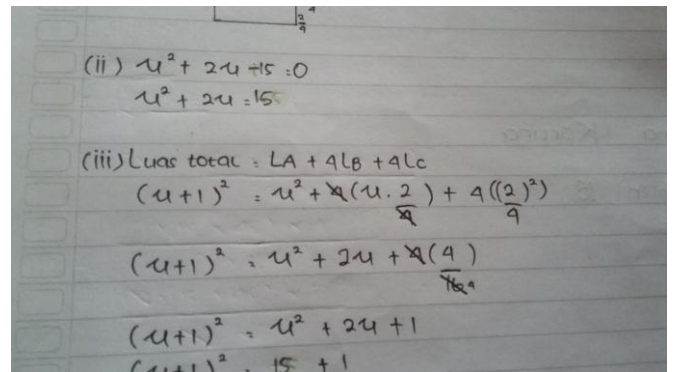 2/4
(ii) x² + 2x - 15 = 0
x² + 2x = 15
(iii) Luas total = LA + 4LB + 4LC
(x+1)² = x² + 4(x . 2/4) + 4((2/4)²)
(x+1)² = x² + 2x + 4(4/16 4)
(x+1)² = x² + 2x + 1
(x+1)² = 15 + 1